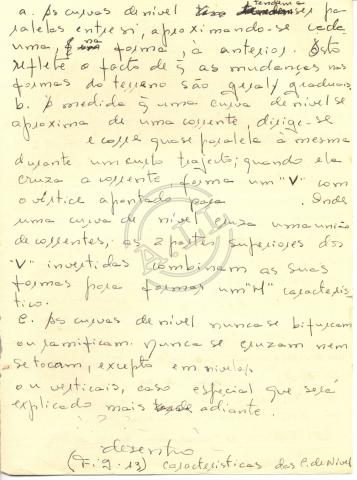 a. As curvas de nível tendem a ser pa
ralelas entre si, aproximando-se cada
uma, na forma, a anterior. Isto
reflete o facto de q̃ as mudanças nas
formas do terreno são gralᵗᵉ graduais.
b. À medida q̃ uma curva de nível se
aproxima de uma corrente, dirige-se
e corre quase paralela à mesma
durante um curto trajecto; quando ela
cruza a corrente forma um "V" com
o vértice apontado para . Onde
uma curva de nível cruza uma união
de correntes, as 2 partes superiores dos
"V" invertidas combinam as suas
formas para formar um "M" caracterís
tico.
c. As curvas de nível nunca se bifurcam
ou ramificam. Nunca se cruzam nem
se tocam, excepto em
ou verticais, caso especial que será
explicado mais adiante.
desenho
(Fig. 13) Características das C. de Nível
A.I.M